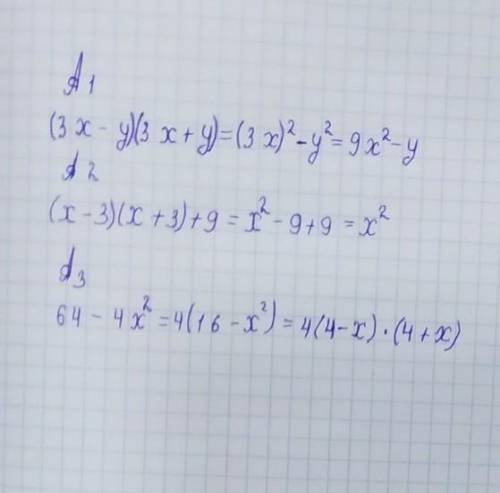 A1
(3x-y)(3x+y)=(3x)²-y²=9x²-y
A2
(x-3)(x+3)+9=x²-9+9=x²
A3
64-4x²=4(16-x²)=4(4-x)·(4+x)